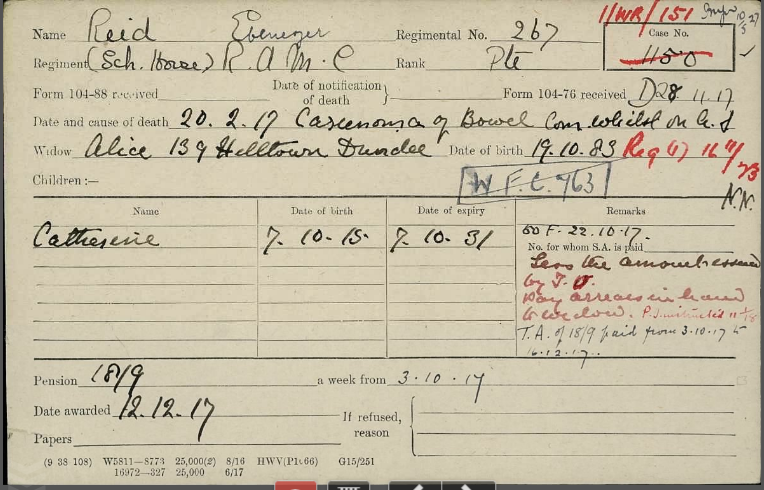 11/WR/151
Name Reid Ebenezer Regimental No. 267 Case No.
1150
Regiment (Sch. House) R.A.M.C Rank Pte
Form 104-88 received Date of notification of death } Form 104-76 received D28 11.17
Date and cause of death 20.2.17 Carcinoma of Bowel Com. whilst on A.S
Widow Alice 139 Hilltown Dundee Date of birth 19.10.83 Reg (1) 16 11/73
Children :— W.F.C. 763 N.N.
Name Date of birth Date of expiry Remarks
Catherine 7.10.15. 7.10.31 50 F-22.10.17.
No. for whom S.A. is paid
Less the amount issued
by T.O.
Pay arrears in hand
to widow.
T.A. of 18/9 paid from 3.10.17 to
16.12.17..
Pension 18/9 a week from 3.10.17
Date awarded 12.12.17 If refused, reason
Papers
(9 38 108) W5811—8773 25,000(2) 8/16 HWV(P1c66) G15/251
16972—327 25,000 6/17